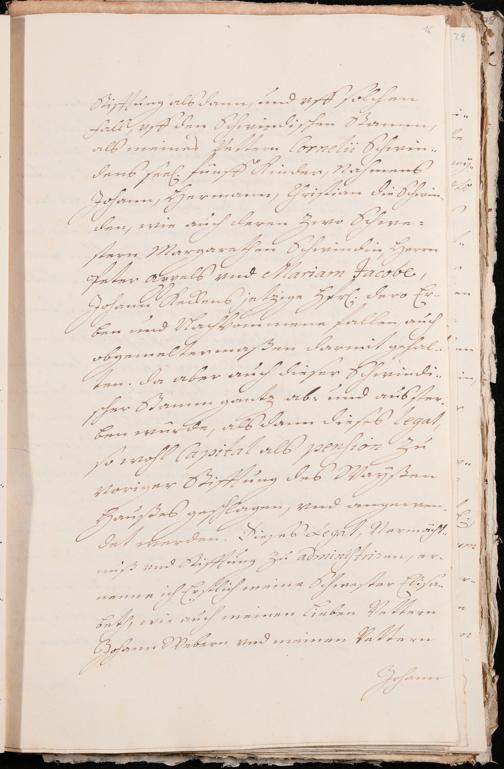 16
29
Stifftung alsdann, und uff solchen
Fall, uff den Schwindischen Stamm,
als meines Vettern Cornelii Schwin-
dens seel. fünff Kinder, Nahmens
Johann, Hermann, Christian die Schwin-
den, wie auch deren zwo Schwe-
stern Margarethen Schwindin Herrn
Peter vnd Mariam Jacobe,
Johann jetzige dero Er-
ben und Nachkommene fallen, auch
obgemeltermaßen darmit gehal-
ten. da aber auch dieser Schwindi-
scher Stamm gantz ab- und ausster-
ben würde, alsdann dieses Legat,
so wohl Capital als pension zu
voriger Stifftung des Wayßen
Haußes geschlagen, vnd angewen-
det werden. Dieses Legat, Vermächt-
niß vnd Stifftung zu administriren, er-
nenne ich Erstlich meine Schwester Elisa-
beth, wie auch meinen lieben Vettern
Johann Webern vnd meinen Vettern
Johann